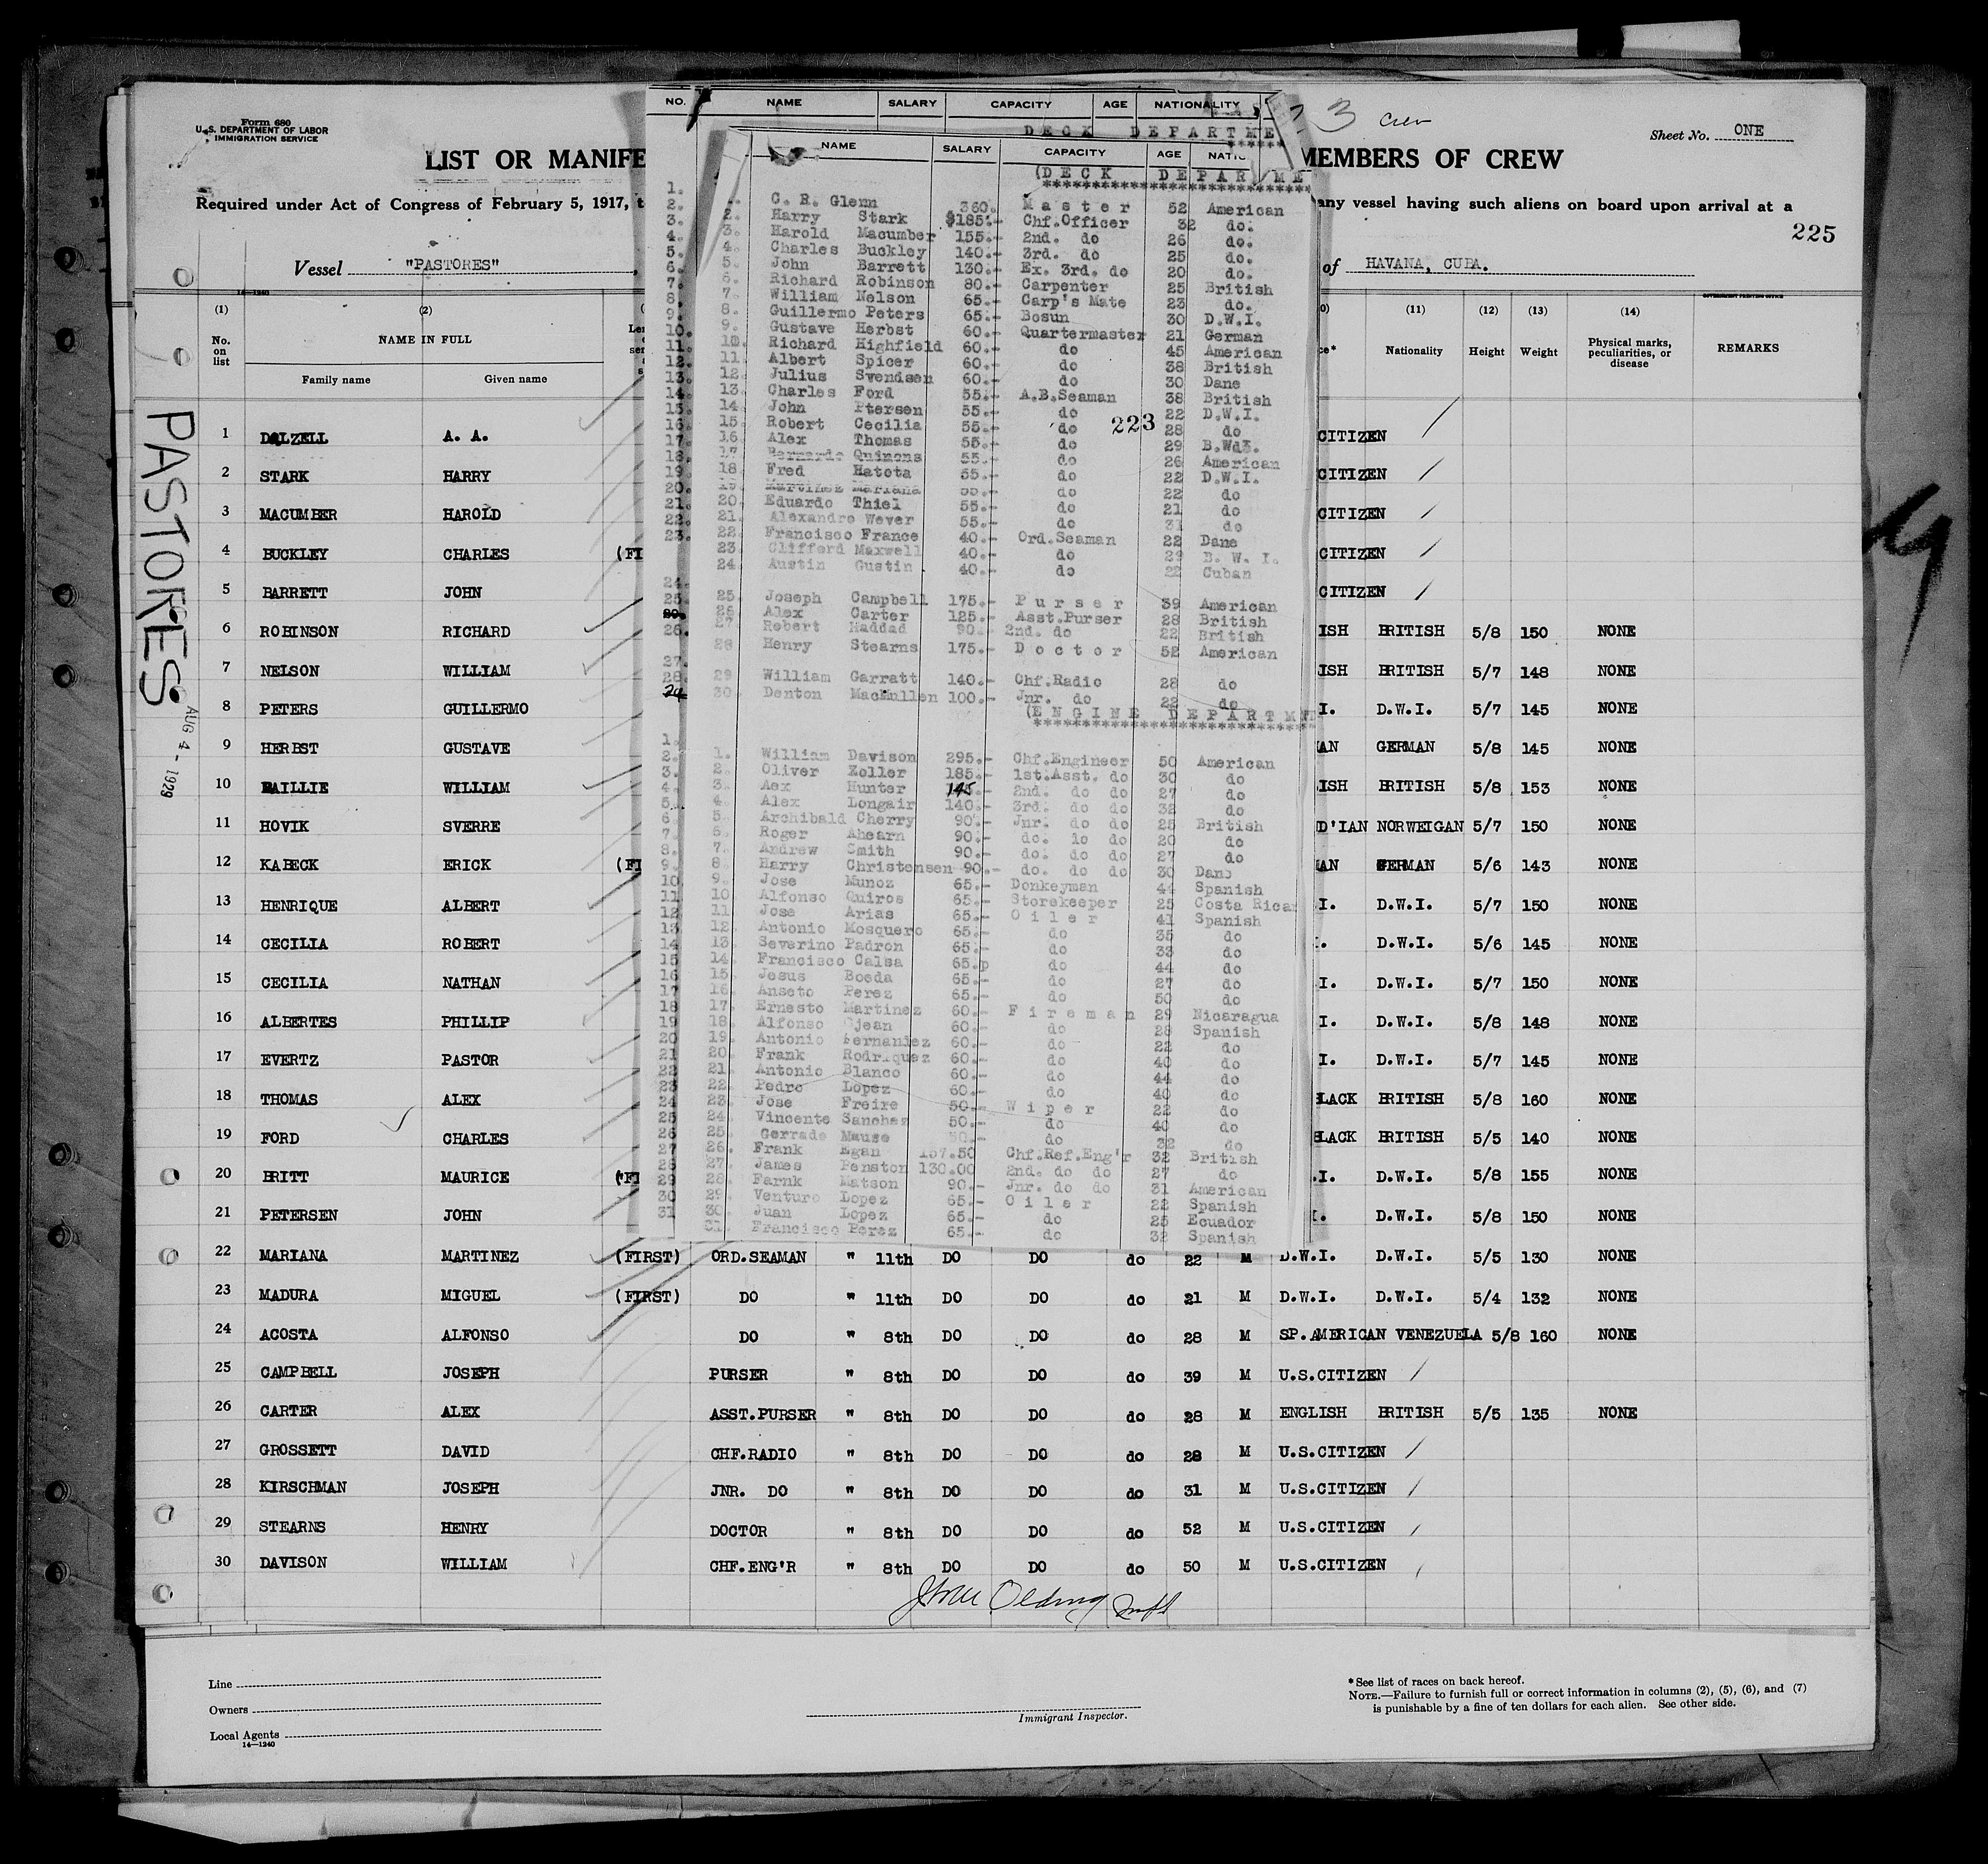 Form 680
U.S. DEPARTMENT OF LABOR
IMMIGRATION SERVICE
LIST OR MANIFE
MEMBERS OF CREW
3 crew
Sheet No. ONE
Required under Act of Congress of February 5, 1917, t
any vessel having such aliens on board upon arrival at a
225
Vessel "PASTORES"
of HAVANA, CUBA.
14-1240
GOVERNMENT PRINTING OFFICE
(1) (2) (11) (12) (13) (14)
No. on list NAME IN FULL Nationality Height Weight Physical marks, peculiarities, or disease REMARKS
Family name Given name
PASTORES.
AUG 4 - 1929
1 DALZELL A. A. CITIZEN
2 STARK HARRY CITIZEN
3 MACUMBER HAROLD CITIZEN
4 BUCKLEY CHARLES (FI CITIZEN
5 BARRETT JOHN CITIZEN
6 ROBINSON RICHARD ISH BRITISH 5/8 150 NONE
7 NELSON WILLIAM ISH BRITISH 5/7 148 NONE
8 PETERS GUILLERMO I. D.W.I. 5/7 145 NONE
9 HERBST GUSTAVE AN GERMAN 5/8 145 NONE
10 BAILLIE WILLIAM ISH BRITISH 5/8 153 NONE
11 HOVIK SVERRE D'IAN NORWEIGAN 5/7 150 NONE
12 KABECK ERICK (FI AN GERMAN 5/6 143 NONE
13 HENRIQUE ALBERT I. D.W.I. 5/7 150 NONE
14 CECILIA ROBERT I. D.W.I. 5/6 145 NONE
15 CECILIA NATHAN I. D.W.I. 5/7 150 NONE
16 ALBERTES PHILLIP I. D.W.I. 5/8 148 NONE
17 EVERTZ PASTOR I. D.W.I. 5/7 145 NONE
18 THOMAS ALEX LACK BRITISH 5/8 160 NONE
19 FORD CHARLES LACK BRITISH 5/5 140 NONE
20 BRITT MAURICE (FI .I. D.W.I. 5/8 155 NONE
21 PETERSEN JOHN I. D.W.I. 5/8 150 NONE
22 MARIANA MARTINEZ (FIRST) ORD.SEAMAN " 11th DO DO do 22 M D.W.I. D.W.I. 5/5 130 NONE
23 MADURA MIGUEL (FIRST) DO " 11th DO DO do 21 M D.W.I. D.W.I. 5/4 132 NONE
24 ACOSTA ALFONSO DO " 8th DO DO do 28 M SP.AMERICAN VENEZUELA 5/8 160 NONE
25 CAMPBELL JOSEPH PURSER " 8th DO DO do 39 M U.S.CITIZEN
26 CARTER ALEX ASST.PURSER " 8th DO DO do 28 M ENGLISH BRITISH 5/5 135 NONE
27 GROSSETT DAVID CHF.RADIO " 8th DO DO do 28 M U.S.CITIZEN
28 KIRSCHMAN JOSEPH JNR. DO " 8th DO DO do 31 M U.S.CITIZEN
29 STEARNS HENRY DOCTOR " 8th DO DO do 52 M U.S.CITIZEN
30 DAVISON WILLIAM CHF.ENG'R " 8th DO DO do 50 M U.S.CITIZEN
NO. NAME SALARY CAPACITY AGE NATIONALITY
DECK DEPARTME
NAME SALARY CAPACITY AGE
(DECK DEPARTME
1. C. R. Glenn 360. Master 52 American
2. Harry Stark $185.- Chf.Officer 32 do.
3. Harold Macumber 155.- 2nd. do 26 do.
4. Charles Buckley 140.- 3rd. do 25 do.
5. John Barrett 130.- Ex. 3rd. do 20 do.
6. Richard Robinson 80.- Carpenter 25 British
7. William Nelson 65.- Carp's Mate 23 do.
8. Guillermo Peters 65.- Bosun 30 D.W.I.
9. Gustave Herbst 60.- Quartermaster 21 German
10. Richard Highfield 60.- do 45 American
11. Albert Spicer 60.- do 38 British
12. Julius Svendsen 60.- do 30 Dane
13. Charles Ford 55.- A.B.Seaman 38 British
14. John Ptersen 55.- do 22 D.W.I.
15. Robert Cecilia 55.- do 28 do
223
16. Alex Thomas 55.- do 29 B.W.I.
17. Bernardo Quinons 55.- do 26 American
18. Fred Hateta 55.- do 22 D.W.I.
19. Martinez Mariana 55.- do 22 do
20. Eduardo Thiel 55.- do 21 do
21. Alexandro Wever 55.- do 31 do
22. Francisco France 40.- Ord.Seaman 22 Dane
23. Clifford Maxwell 40.- do 29 B. W. I.
24. Austin Gustin 40.- do 22 Cuban
25. Joseph Campbell 175.- Purser 39 American
26 Alex Carter 125.- Asst.Purser 28 British
27 Robert Haddad 90.- 2nd. do 22 British
28 Henry Stearns 175.- Doctor 52 American
29 William Garratt 140.- Chf.Radio 28 do
30. Denton MacMullen 100.- Jnr. do 22 do
(ENGINE DEPARTMEN
1. William Davison 295.- Chf.Engineer 50 American
2. Oliver Zoller 185.- 1st.Asst. do 30 do
3. Aex Hunter 145.- 2nd. do do 27 do
4. Alex Longair 140.- 3rd. do do 32 do
5. Archibald Cherry 90.- Jnr. do do 25 British
6. Roger Ahearn 90.- do. do do 20 do
7. Andrew Smith 90.- do. do do 27 do
8. Harry Christensen 90.- do. do do 30 Dane
9. Jose Munoz 65.- Donkeyman 44 Spanish
10 Alfonso Quiros 65.- Storekeeper 25 Costa Rica
11 Jose Arias 65.- Oiler 41 Spanish
12. Antonio Mosquero 65.- do 35 do
13. Severino Padron 65.- do 33 do
14. Francisco Calsa 65.p do 44 do
15. Jesus Boeda 65.- do 27 do
16. Anseto Perez 65.- do 50 do
17. Ernesto Martinez 60.- Fireman 29 Nicaragua
18. Alfonso Ojean 60.- do 28 Spanish
19. Antonio Fernaniez 60.- do 22 do
20. Frank Rodriquez 60.- do 40 do
21. Antonio Blanco 60.- do 44 do
22 Pedro Lopez 60.- do 40 do
23. Jose Freire 50.- Wiper 22 do
24. Vincente Sanchez 50.- do 40 do
25. Gerrado Mause 50.- do 32 do
26. Frank Egan 157.50 Chf.Ref.Eng'r 32 British
27. James Penston 130.00 2nd. do do 27 do
28. Farnk Matson 90.- Jnr. do do 31 American
29. Venturo Lopez 65.- Oiler 22 Spanish
30. Juan Lopez 65.- do 25 Ecuador
31. Francisco Perez 65.- do 32 Spanish
Line
Owners
Local Agents
14-1240
Immigrant Inspector.
*See list of races on back hereof.
NOTE.—Failure to furnish full or correct information in columns (2), (5), (6), and (7)
is punishable by a fine of ten dollars for each alien. See other side.